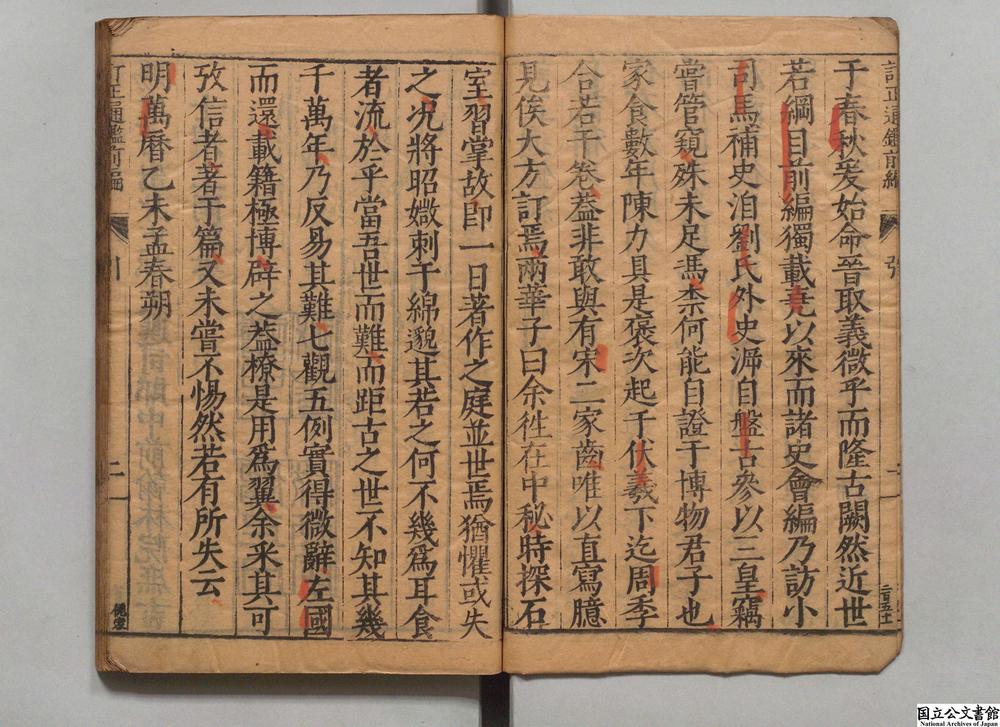 于春秋爰始命晉取義微乎而隆古闕然近世
若綱目前編獨載堯以來而諸史會編乃訪小
司馬補史洎劉氏外史泝自盤古參以三皇竊
嘗管窺殊未足馮柰何能自證于博物君子也
家食數年陳力具是褒次起千伏羲下迄周季
合若干卷葢非敢與有宋二家齒唯以直寫臆
見俟大方訂焉兩華子曰余徃在中秘時探石
室習掌故即一日著作之庭並世焉猶懼或失
之况將昭媺刺于綿邈其若之何不幾爲耳食
者流於乎當吾世而難而距古之世不知其幾
千萬年乃反易其難七觀五例實得微辭左國
而還載籍極博辟之葢橑是用爲翼余采其可
攷信者著于篇又未嘗不惕然若有所失云
明萬曆乙未孟春朔
訂正通鑑前編
二
國立公文書館
National Archives of Japan